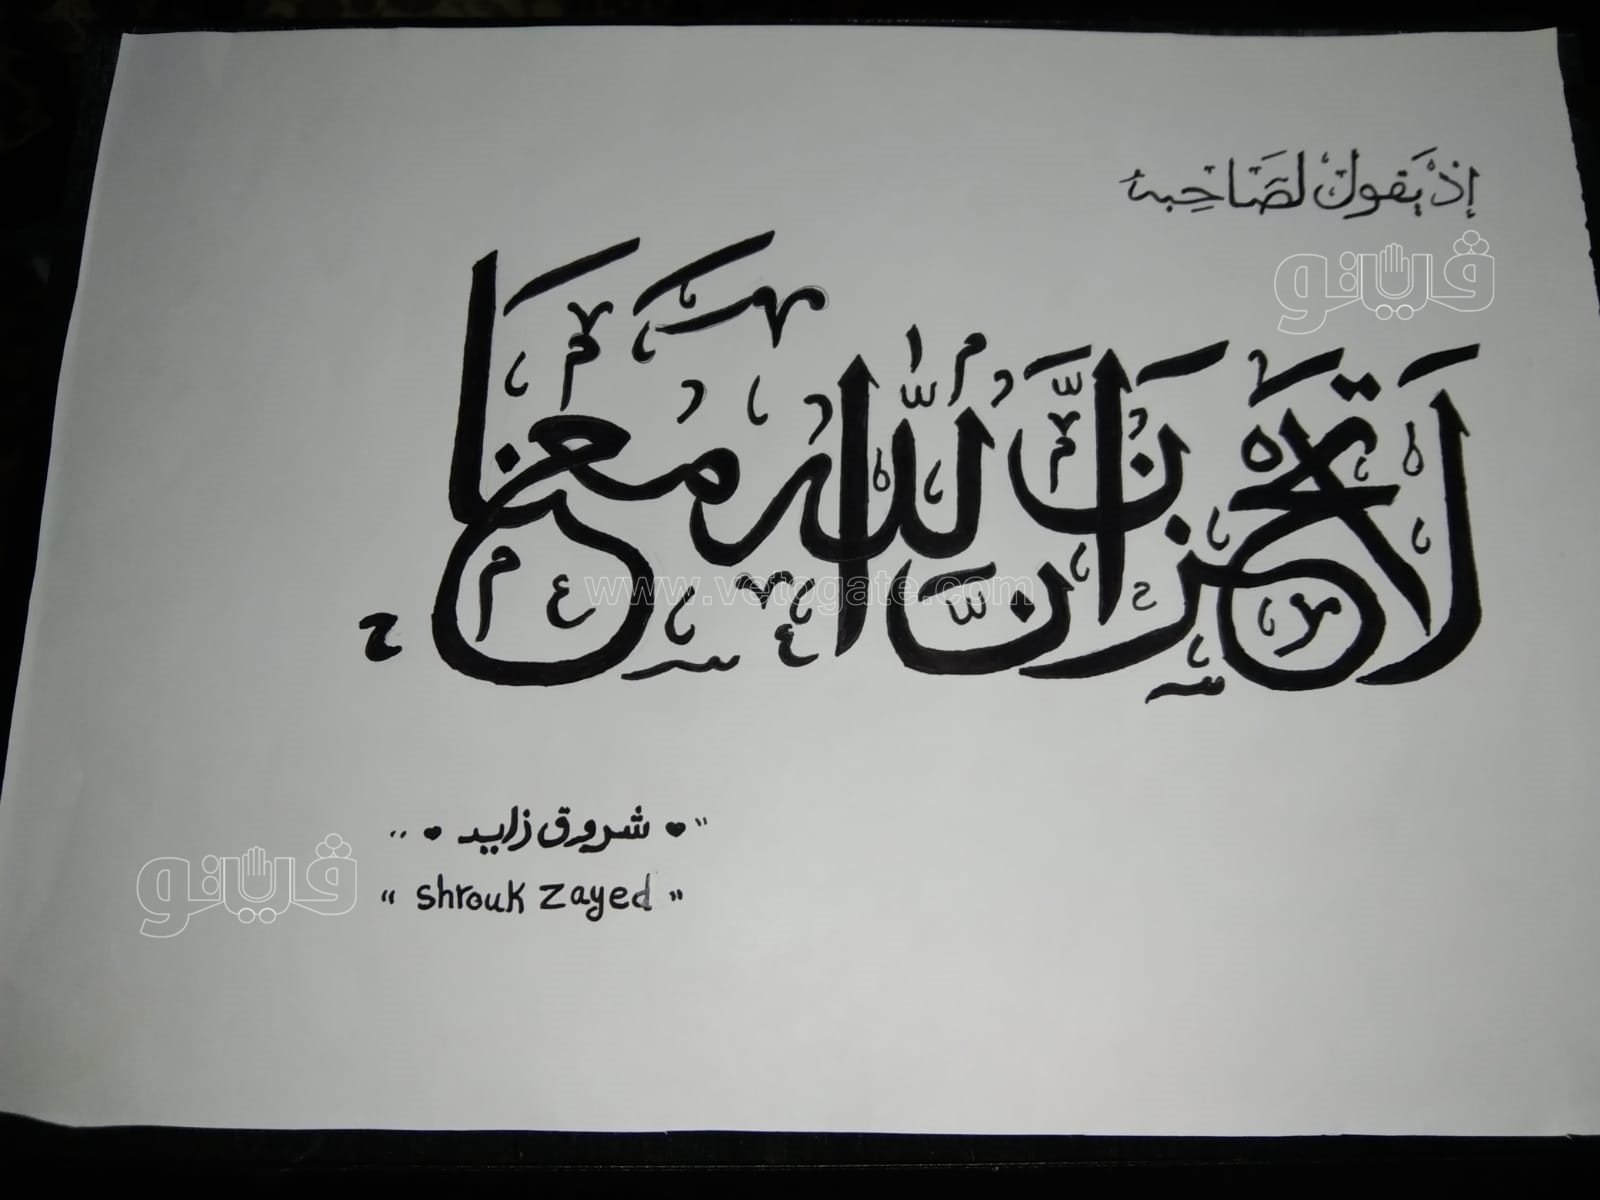 إذ يقول لصاحبه
فيتو
لا تحزن إن الله معنا
www.vetogate.com
شروق زايد
فيتو
" Shrouk Zayed "